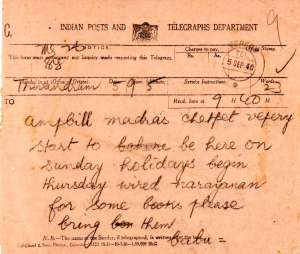 C.
INDIAN POSTS AND TELEGRAPHS DEPARTMENT
NOTICE.
This form must accompany any inquiry made respecting this Telegram.
Charges to pay.
Rs. As.
5 SEP. 40
Handed in at (Office of Origin). Date. Service Instructions. Words.
Trivandrum 5 9 5 23
TO
Recd. here at 9 H 40 M
ampbill madras chetpet vepery
start to be here on
sunday holidays begin
thursday wired narayanan
for some books please
bring them
babu =
N.B.—The name of the Sender, if telegraphed, is written